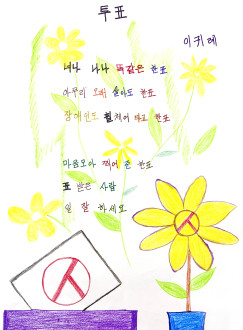 투표
이귀례
너나 나나 똑같은 한표
아무리 오래 살아도 한표
장애인도 휠체어 타고 한표
마음모아 찍어 준 한표
표 받은 사람
일 잘 하세요